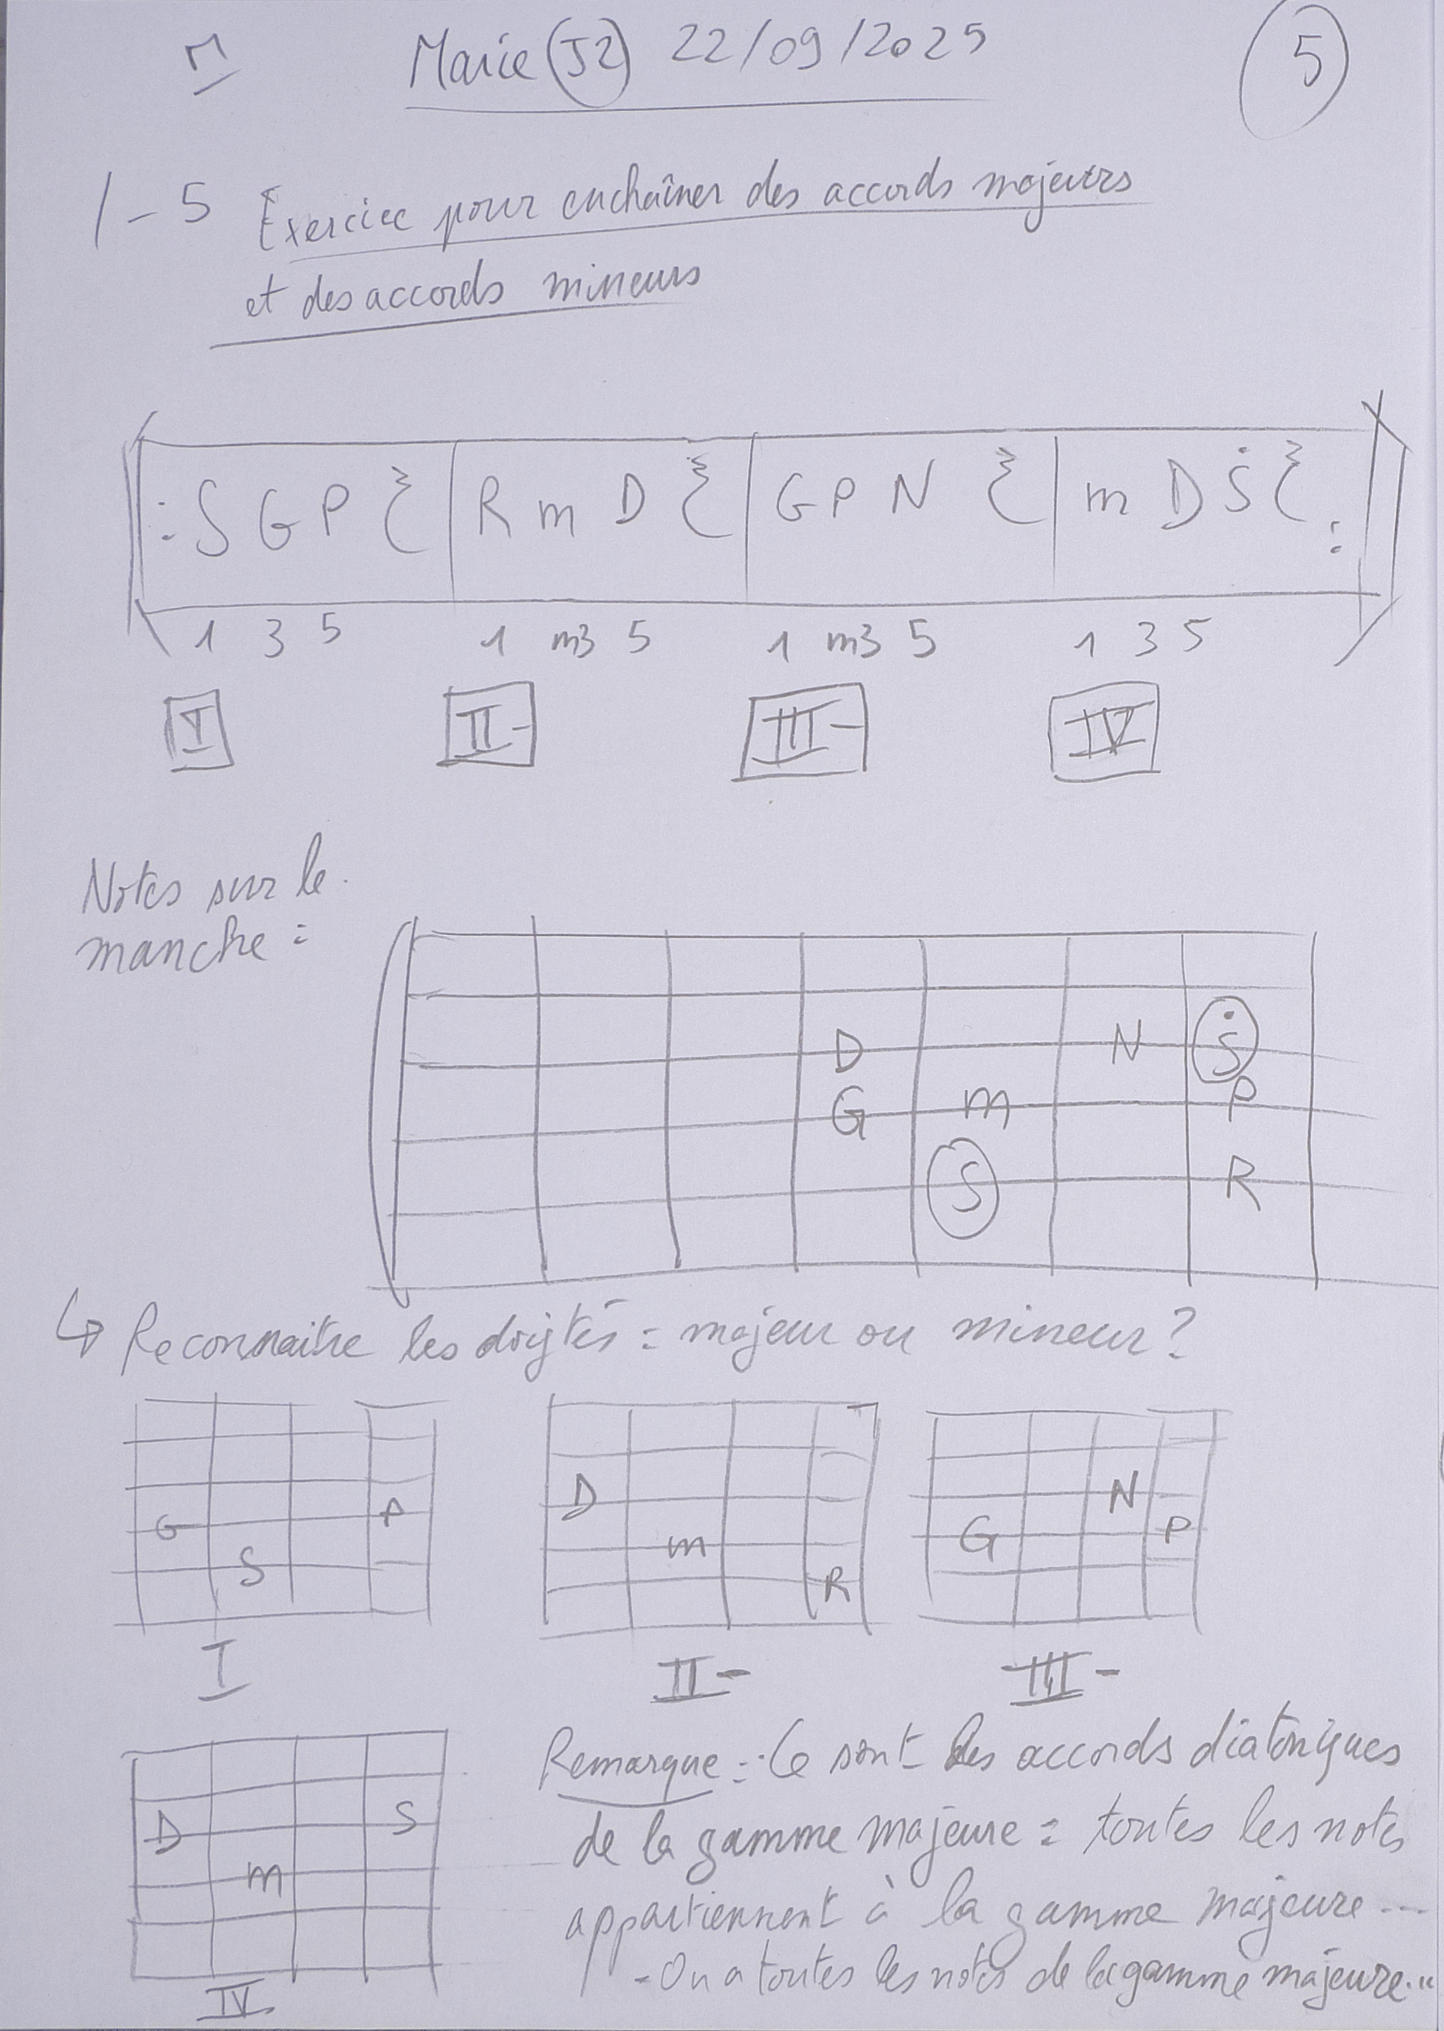 Marie (J2) 22/09/2025
5
1-5 Exercice pour enchaîner des accords majeurs
et des accords mineurs
: S G P R m D G P N m D Ṡ :
1 3 5 1 m3 5 1 m3 5 1 3 5
I II- III- IV
Notes sur le
manche :
D N Ṡ
G m P
S R
↳ Reconnaitre les doigtés : majeur ou mineur ?
D N
G P m G P
S R
I II- III-
Remarque : Ce sont des accords diatoniques
D S
de la gamme majeure : toutes les notes
m
appartiennent à la gamme majeure...
- On a toutes les notes de la gamme majeure..
IV